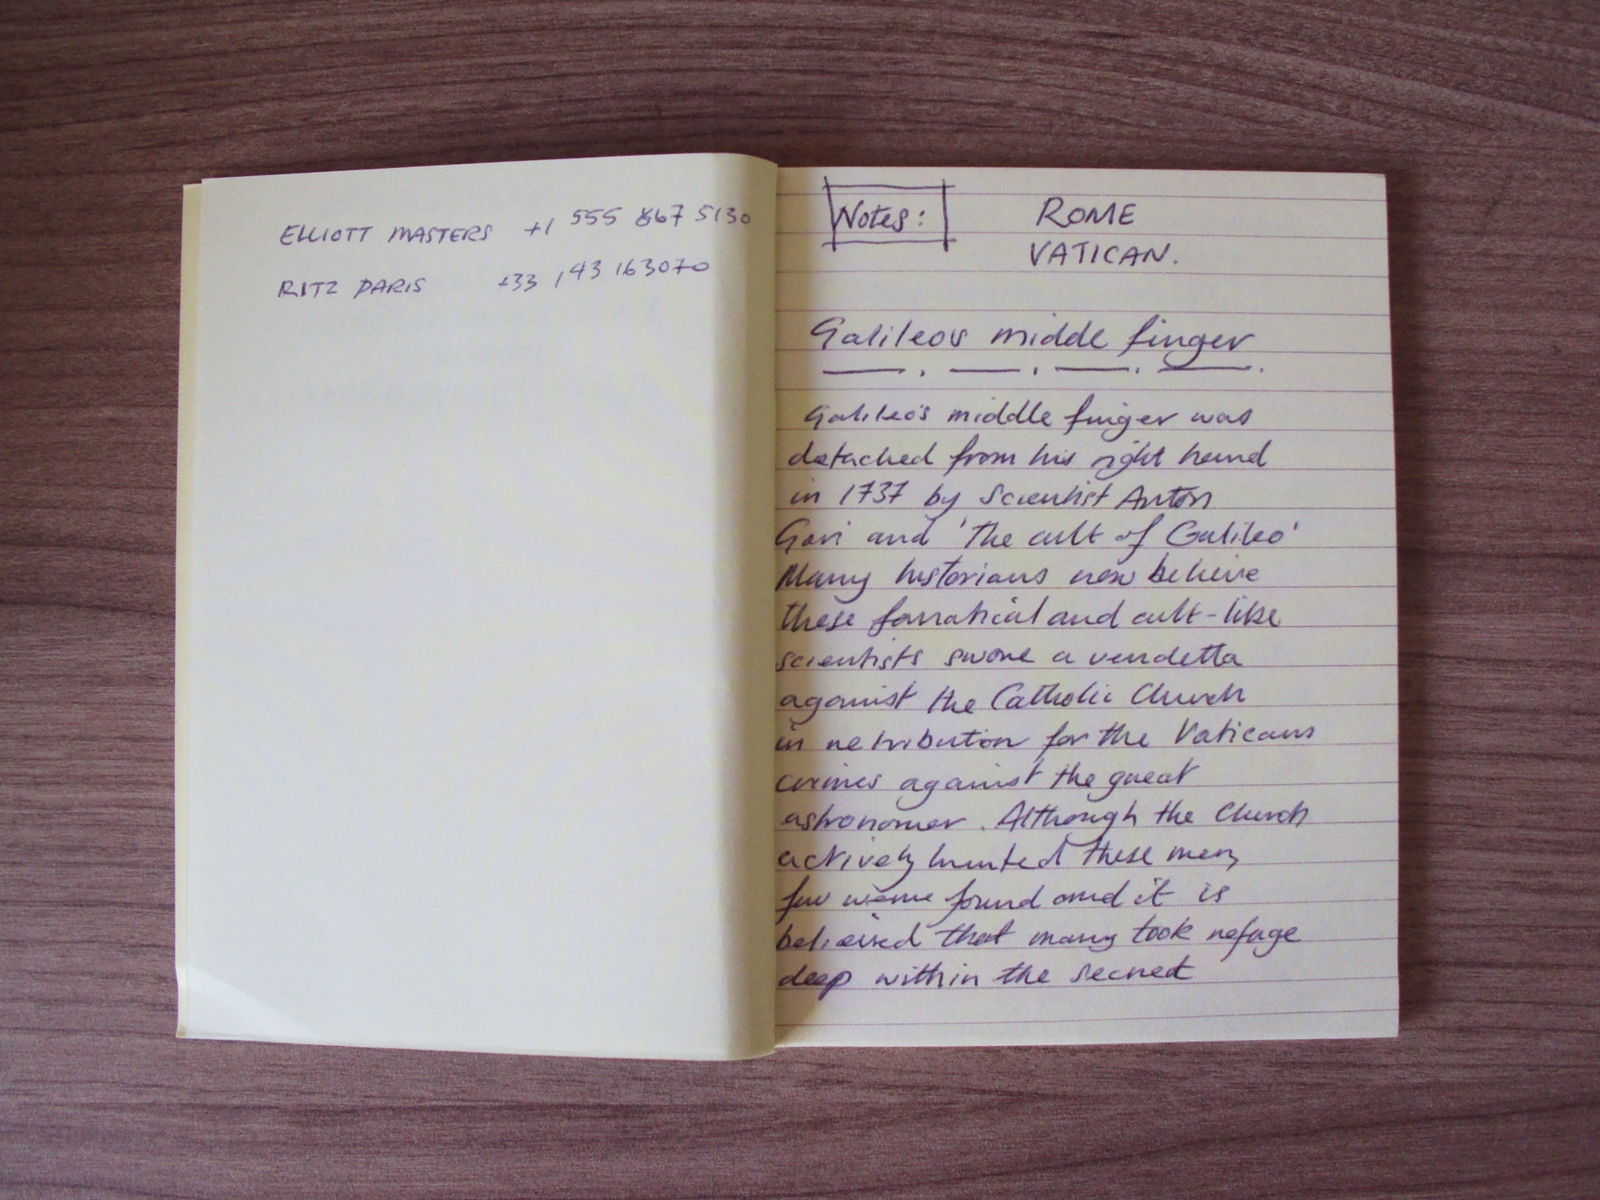 ELLIOTT MASTERS +1 555 867 5130
RITZ PARIS +33 143 163070
Notes: ROME
VATICAN.
Galileo's midde finger
Galileo's middle finger was
detached from his right hand
in 1737 by Scientist Anton
Gori and 'The cult of Galileo'
Many historians now believe
these fanatical and cult-like
scientists swore a vendetta
against the Catholic Church
in retribution for the Vaticans
crimes against the great
astronomer. Although the Church
actively hunted these men,
few were found and it is
believed that many took refuge
deep within the secret